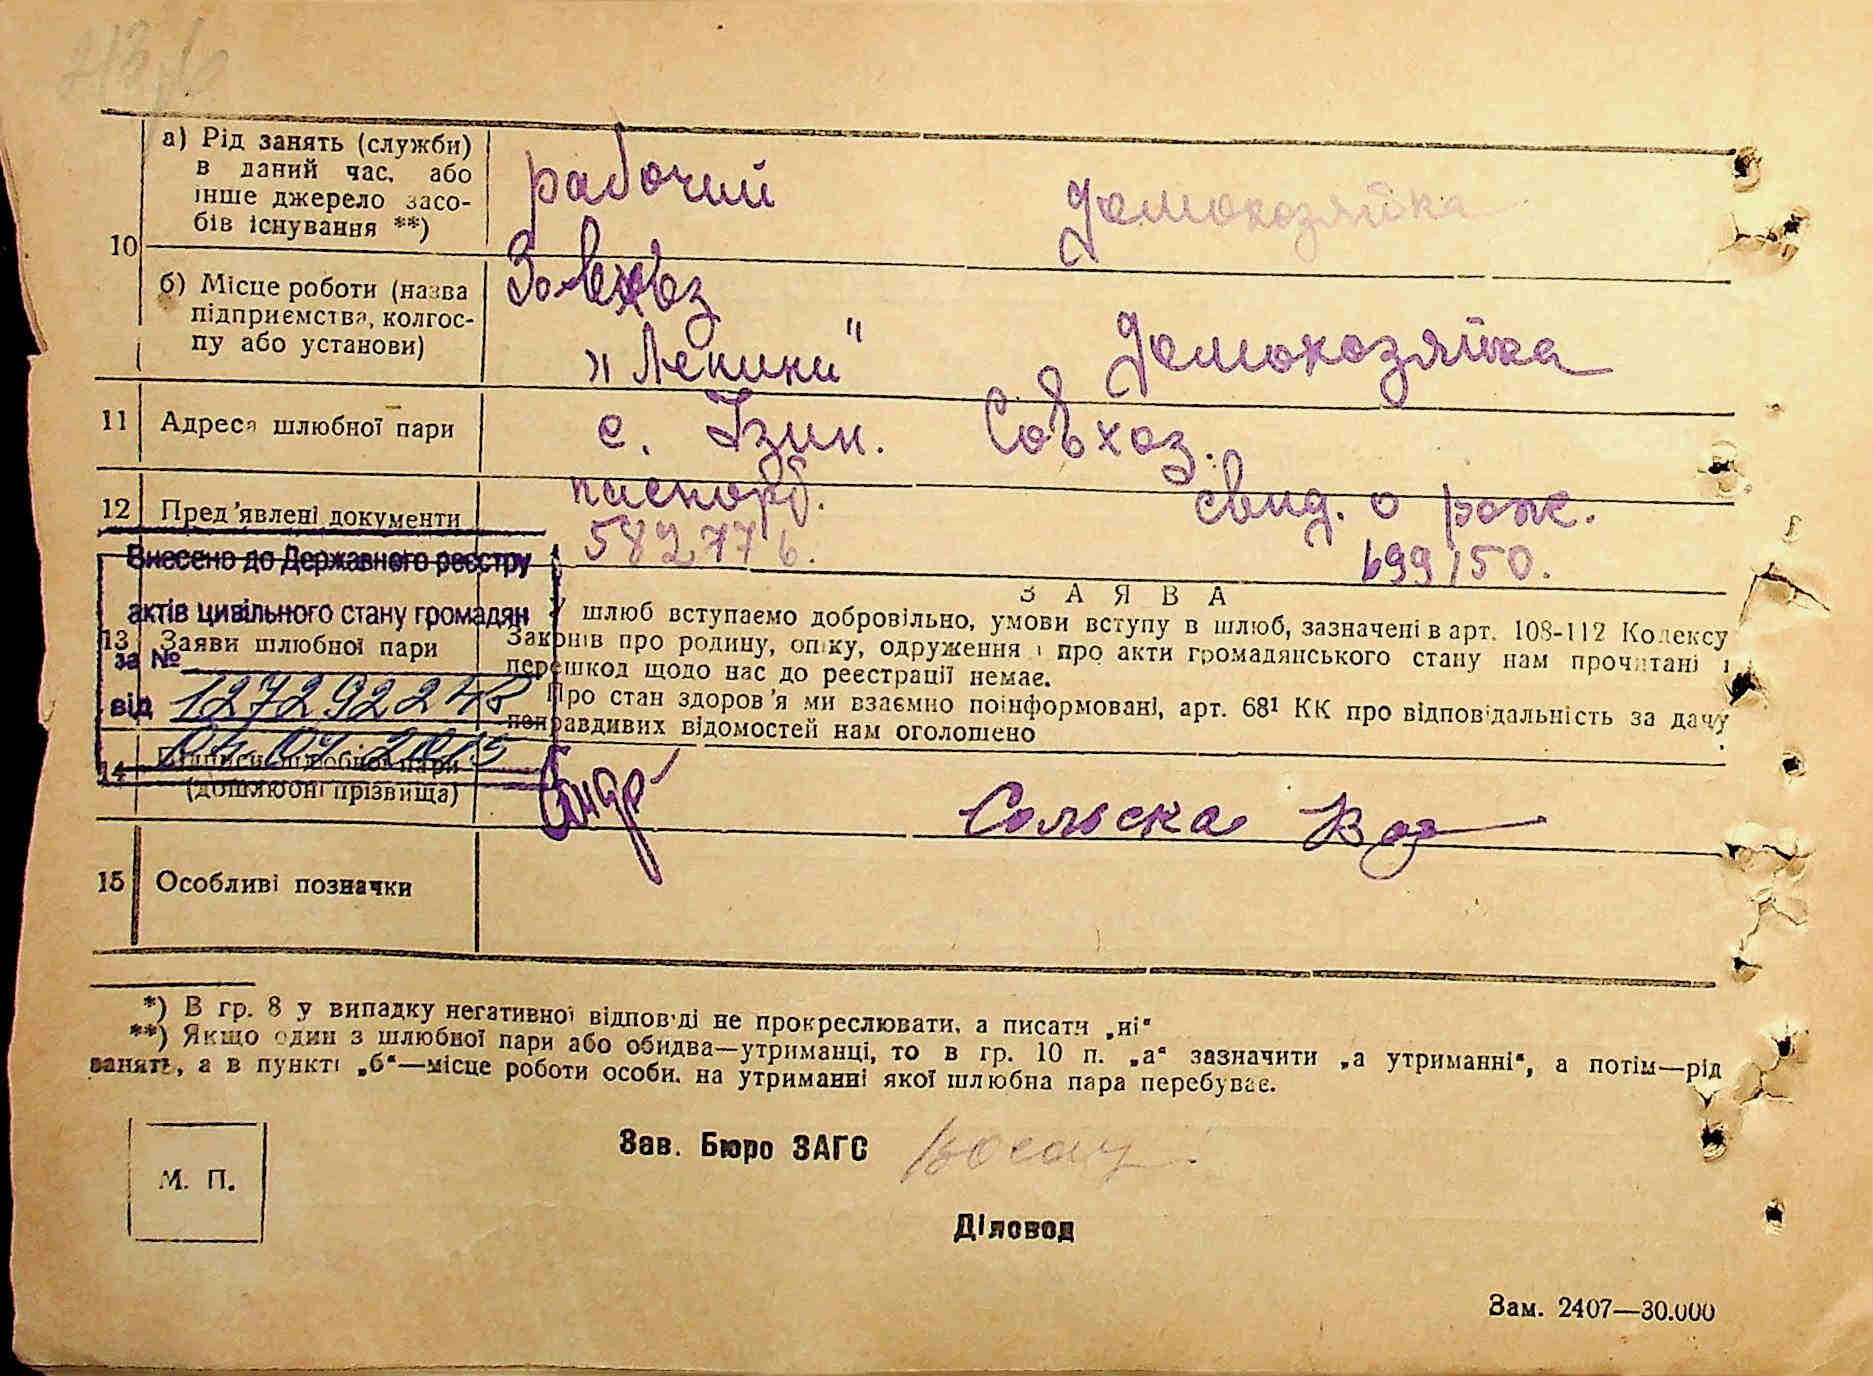 а) Рід занять (служби)
в даний час, або
інше джерело засо-
бів існування **)
рабочий
домохозяйка
10
б) Місце роботи (назва
підприємства, колгос-
пу або установи)
„Ленина“
домохозяйка
11 Адреса шлюбної пари
с. Ізин. Совхоз.
12 Пред'явлені документи
паспорт. свид. о рож.
582776. 699150.
Внесено до Державного реєстру
актів цивільного стану громадян
за №
від 12729224
04 07 2015
З А Я В А
13 Заяви шлюбної пари
У шлюб вступаємо добровільно, умови вступу в шлюб, зазначені в арт. 108-112 Кодексу
Законів про родину, опіку, одруження і про акти громадянського стану нам прочитані і
перешкод щодо нас до реєстрації немає.
Про стан здоров'я ми взаємно поінформовані, арт. 68¹ КК про відповідальність за дачу
неправдивих відомостей нам оголошено
14 Підписи шлюбної пари
(дошлюбні прізвища)
Сольска
15 Особливі позначки
*) В гр. 8 у випадку негативної відповіді не прокреслювати, а писати „ні“
**) Якщо один з шлюбної пари або обидва—утриманці, то в гр. 10 п. „а“ зазначити „а утриманні“, а потім—рід
занять, а в пункті „б“—місце роботи особи, на утриманні якої шлюбна пара перебуває.
Зав. Бюро ЗАГС
М. П.
Діловод
Зам. 2407—30.000